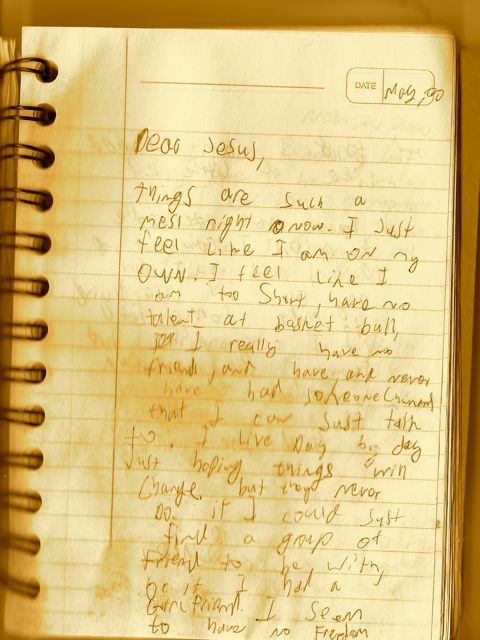 DATE May, 90
Dear Jesus,
things are such a
mess right now. I Just
feel like I am on my
own. I feel like I
am too Short, have no
talent at basket ball,
I really have no
friends, and have, and never
have had someone
that I can Just talk
to. I live Day by day
Just hoping things will
Change, but they never
Do. if I could Just
find a group of
friend to be with,
or if I had a
Girlfriend. I seem
to have no freedom